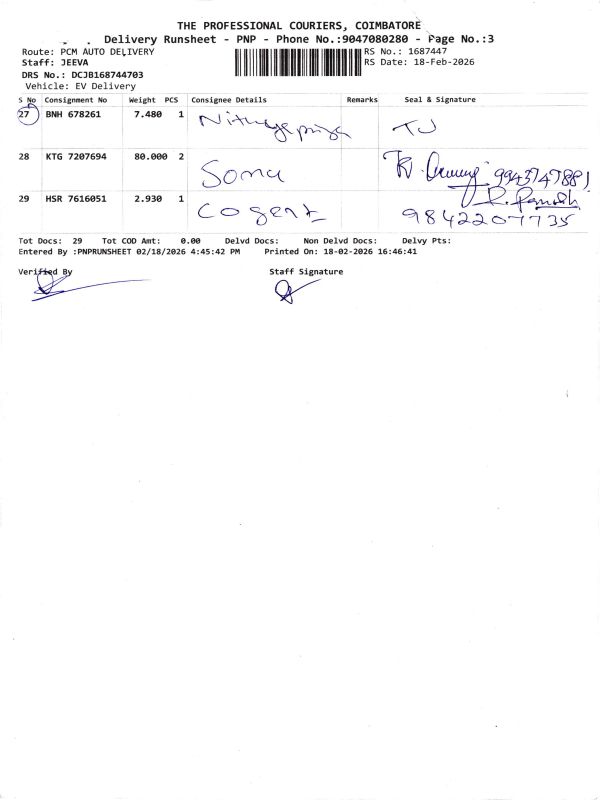 THE PROFESSIONAL COURIERS, COIMBATORE
Delivery Runsheet - PNP - Phone No.:9047080280 - Page No.:3
Route: PCM AUTO DELIVERY RS No.: 1687447
Staff: JEEVA RS Date: 18-Feb-2026
DRS No.: DCJB168744703
Vehicle: EV Delivery
S No Consignment No Weight PCS Consignee Details Remarks Seal & Signature
27 BNH 678261 7.480 1 TJ
28 KTG 7207694 80.000 2 Soma
29 HSR 7616051 2.930 1 Cogent R. Ramesh
9842207735
Tot Docs: 29 Tot COD Amt: 0.00 Delvd Docs: Non Delvd Docs: Delvy Pts:
Entered By :PNPRUNSHEET 02/18/2026 4:45:42 PM Printed On: 18-02-2026 16:46:41
Verified By Staff Signature